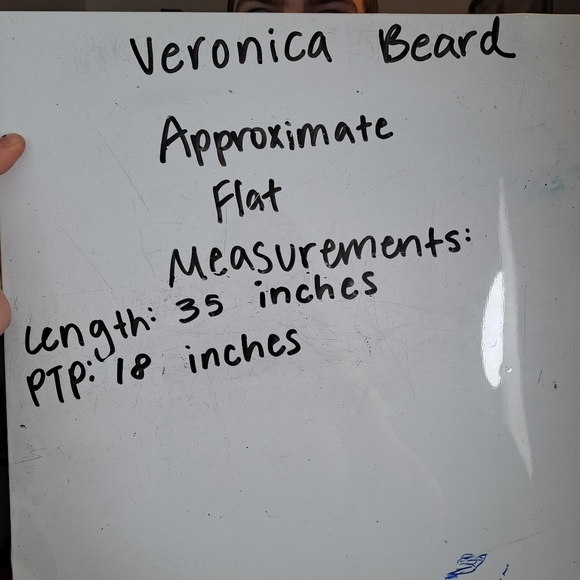 Veronica Beard
Approximate
Flat
Measurements:
Length: 35 inches
PTP: 18 inches